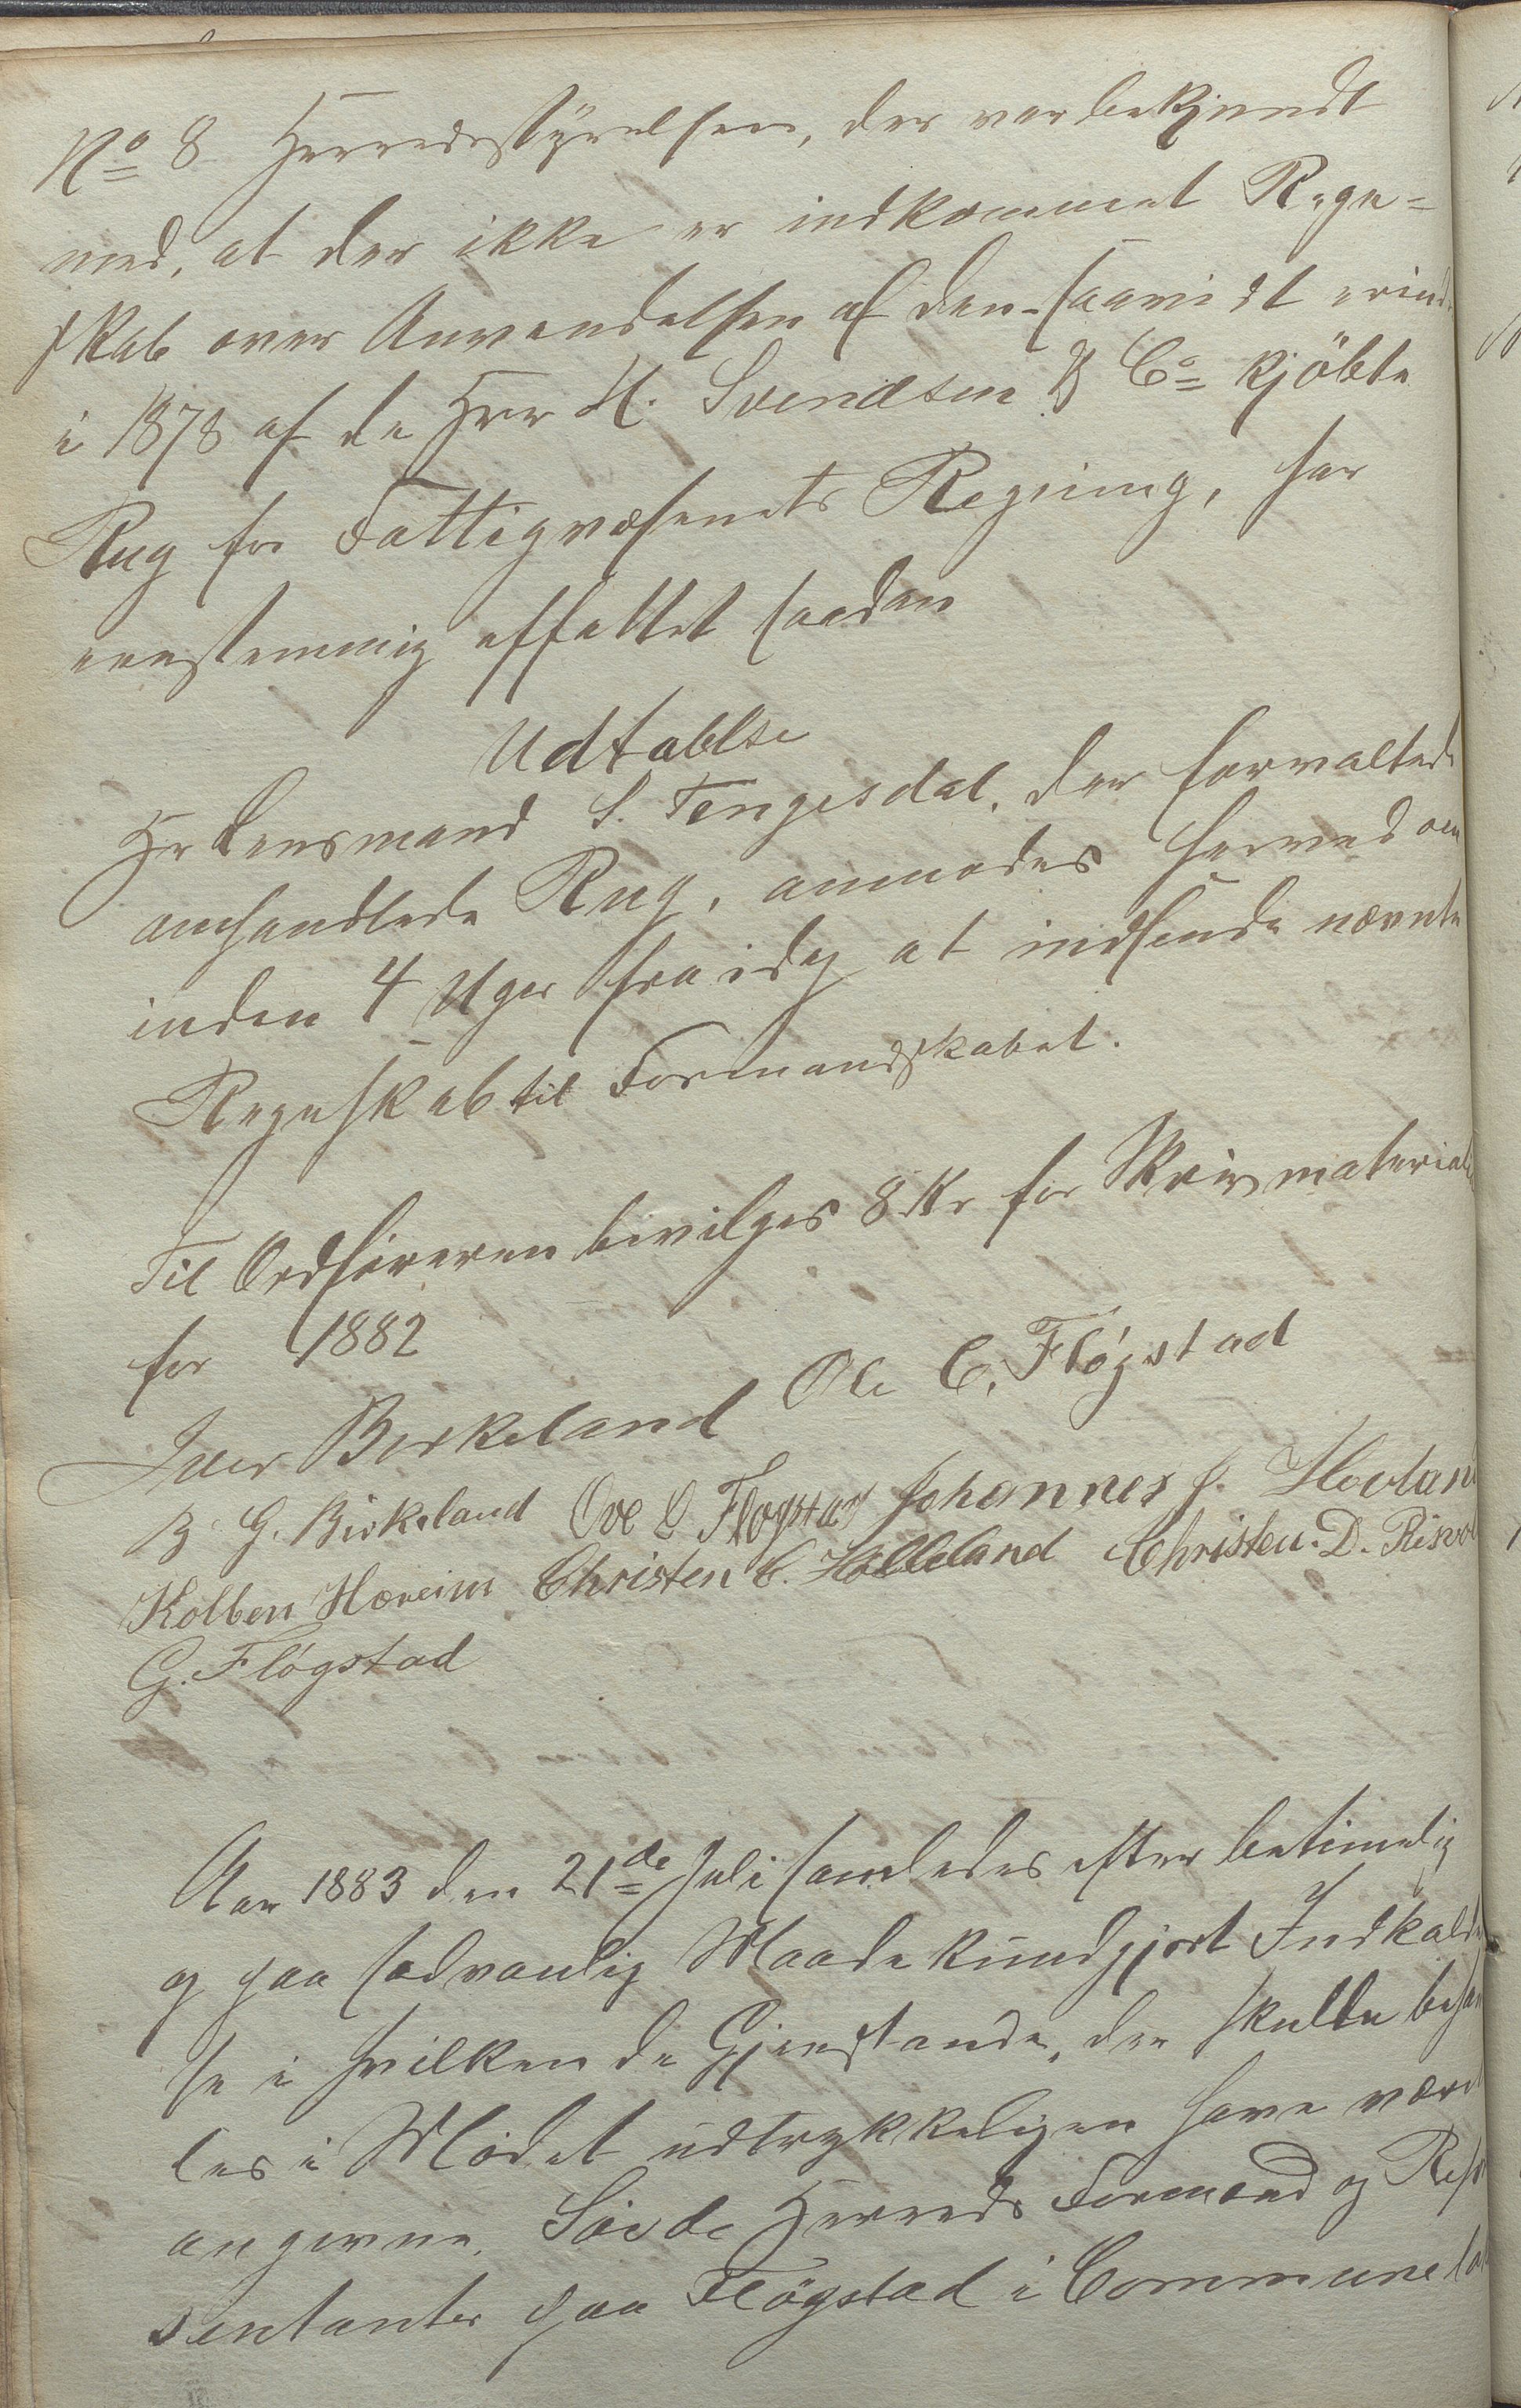 No 8 Herredsstyrelsen, der var bekjendt
med, at der ikke er indkommet Regn=
skab over Anvendelsen af den-saavidt erind.
i 1878 af de Herr H. Svendsen & Co kjöbte
Rug for Fattigvæsenets Regning, har
eenstemmig affattet saadan
Udtalelse
Hr Lensmand S. Tengesdal, der forvaltede
omhandlede Rug, anmodes herved om
inden 4 Uger fra idag at indsende nævnte
Regnskab til Formandskabet.
Til Ordføreren bevilges 8 Kr for Skrivmateriali
for 1882
Iver Birkeland Ole C. Fløgstad
B G. Birkeland Ove L Flogstad Johannes J. Hovland
Kolben Hæreim Christen C. Hølleland Christen. D. Risvol
G. Fløgstad
Aar 1883 den 21de Juli samledes efter betimelig
og paa sædvanlig Maade kundgjort Indkaldel
se i hvilken de Gjenstande, der skulle behan
les i Mødet udtrykkeligen have været
angivne, Søvde Herreds Formænd og Repræ
sentanter paa Fløgstad i Communelok